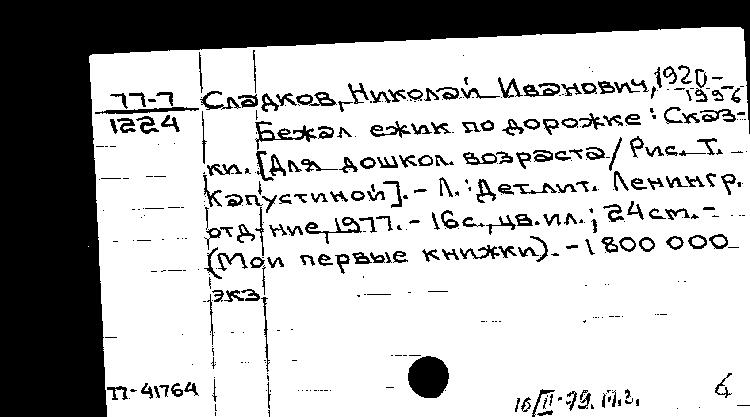 77-7
1224
Сладков, Николай Иванович, 1920-
1996
Бежал ежик по дорожке : Сказ-
ки. [Для дошкол. возраста / Рис. Т.
Капустиной]. - Л. : Дет. лит. Ленингр.
отд-ние, 1977. - 16 с., цв. ил. ; 24 cm. -
(Мои первые книжки). - 1 800 000
экз.
77-41764
16/II-79. М.г.
6